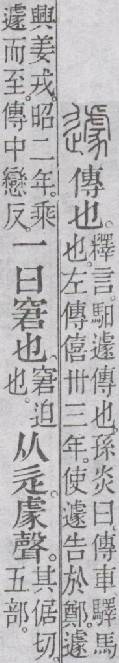 遽傳也。
釋言。馹遽傳也。孫炎曰。傳車驛馬
也。左傳僖卅三年。使遽告於鄭。遽
興姜戎。昭二年。乘
遽而至。傳中戀反。
一曰窘也。
窘迫
也。
从辵。豦聲。
其倨切。
五部。